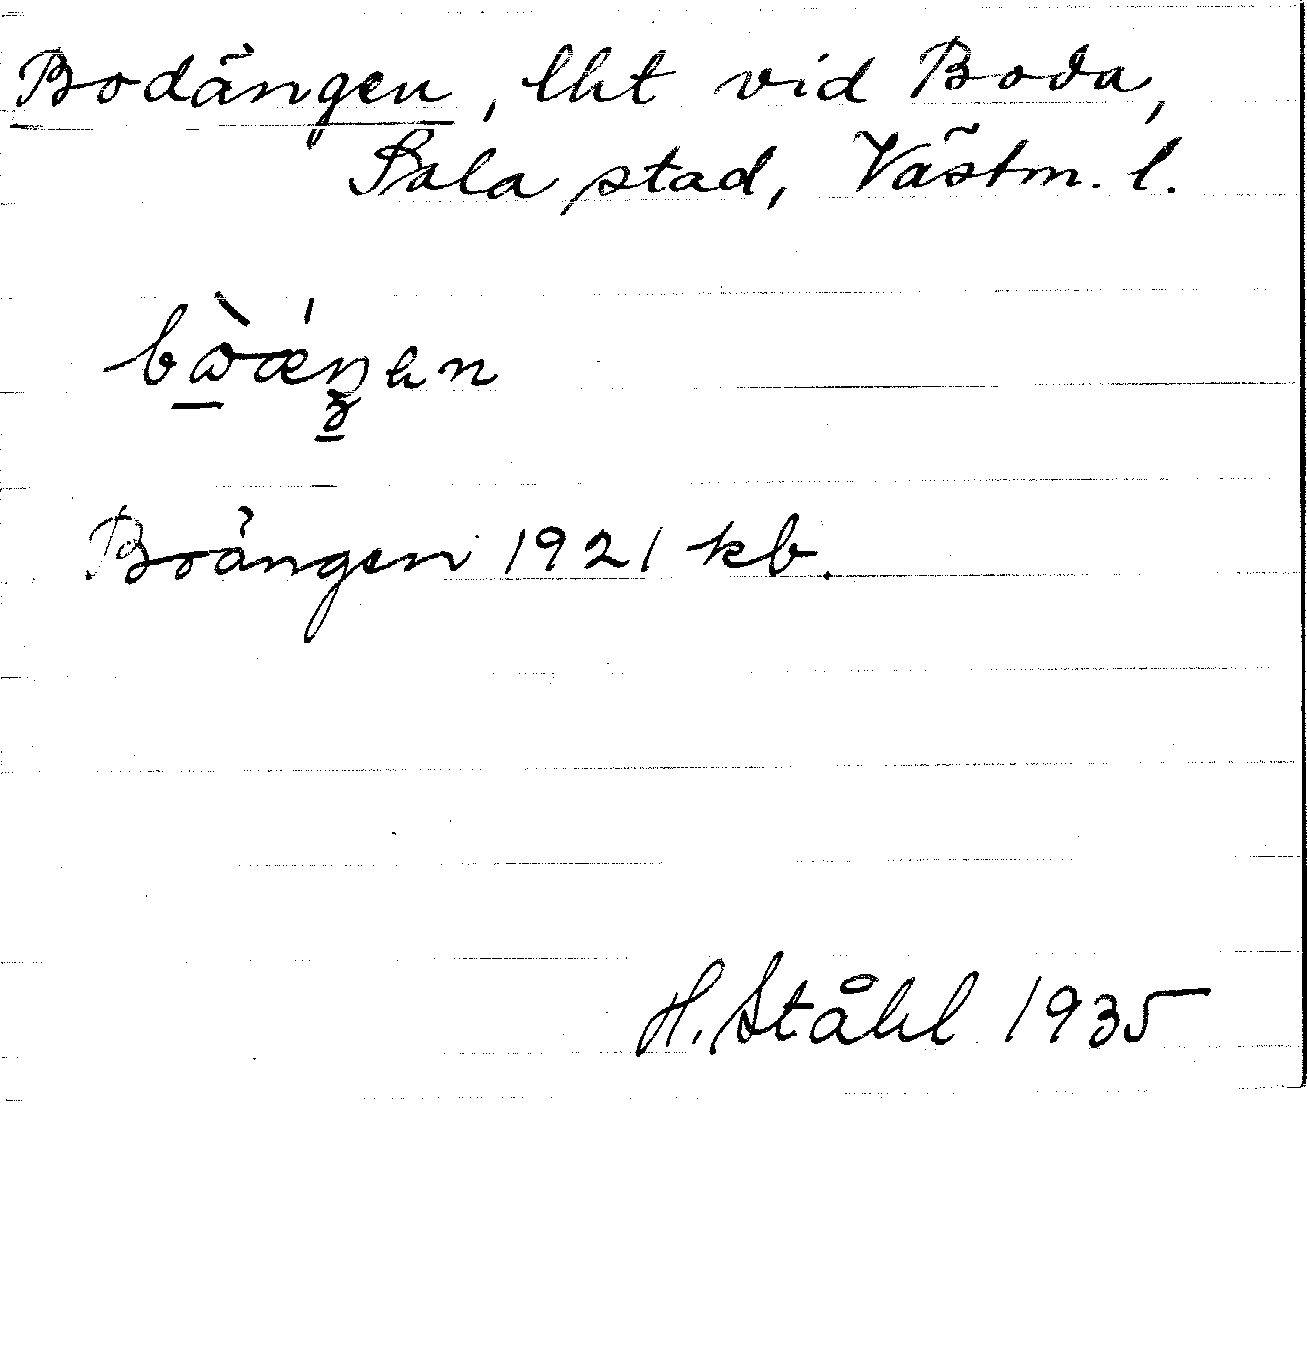 Bodängen, lht vid Boda,
Sala stad, Västm. l.
Boängen 1921 kb.
H. Ståhl 1935